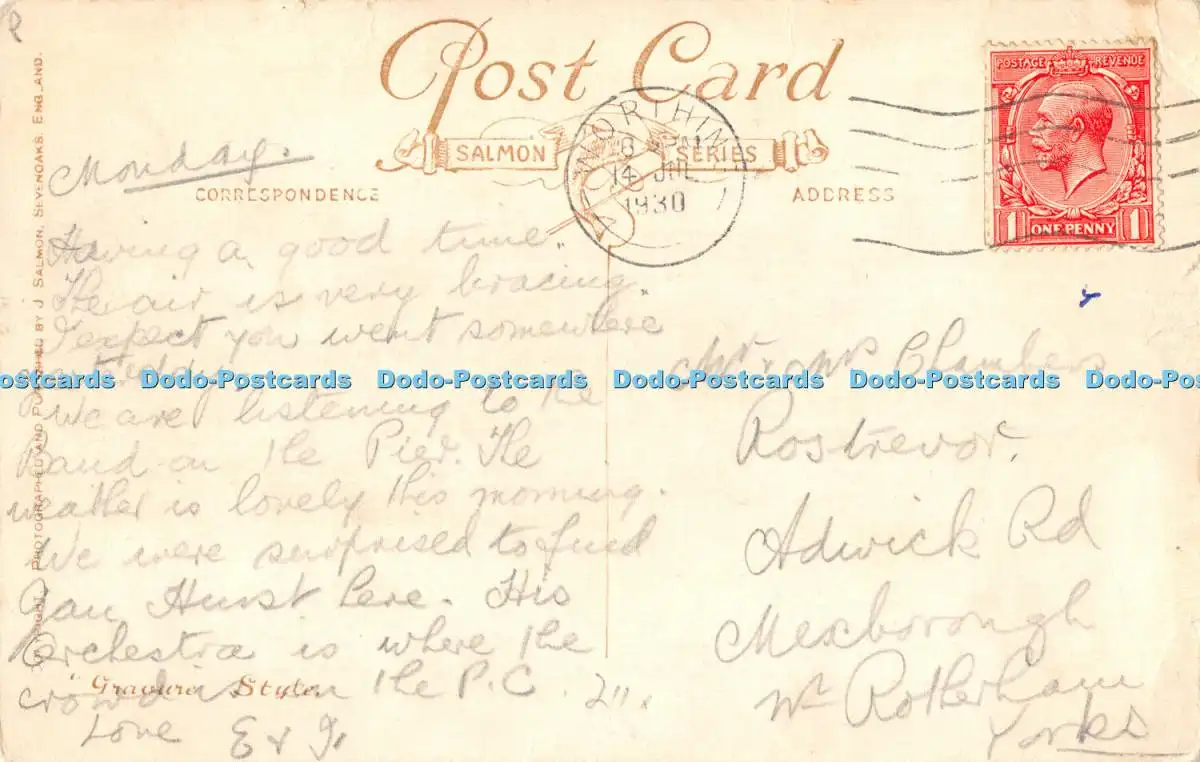 Post Card
SALMON SERIES
WORTHING
8 PM
14 JUL
1930
POSTAGE REVENUE
1 ONE PENNY 1
CORRESPONDENCE
ADDRESS
Monday.
Having a good time.
The air is very bracing.
I expect you went somewhere
yesterday.
We are listening to the
Band on the Pier. The
weather is lovely this morning.
We were surprised to find
Jan Hurst here. His
Orchestra is where the
crowd is on the P.C.
Love E & J.
Mr & Mrs Chambers
Rostrevor,
Adwick Rd
Mexborough
Nr Rotherham
Yorks
"Gravure" Style.
PHOTOGRAPHED AND PUBLISHED BY J SALMON, SEVENOAKS, ENGLAND.
Dodo-Postcards Dodo-Postcards Dodo-Postcards Dodo-Postcards Dodo-Postcards